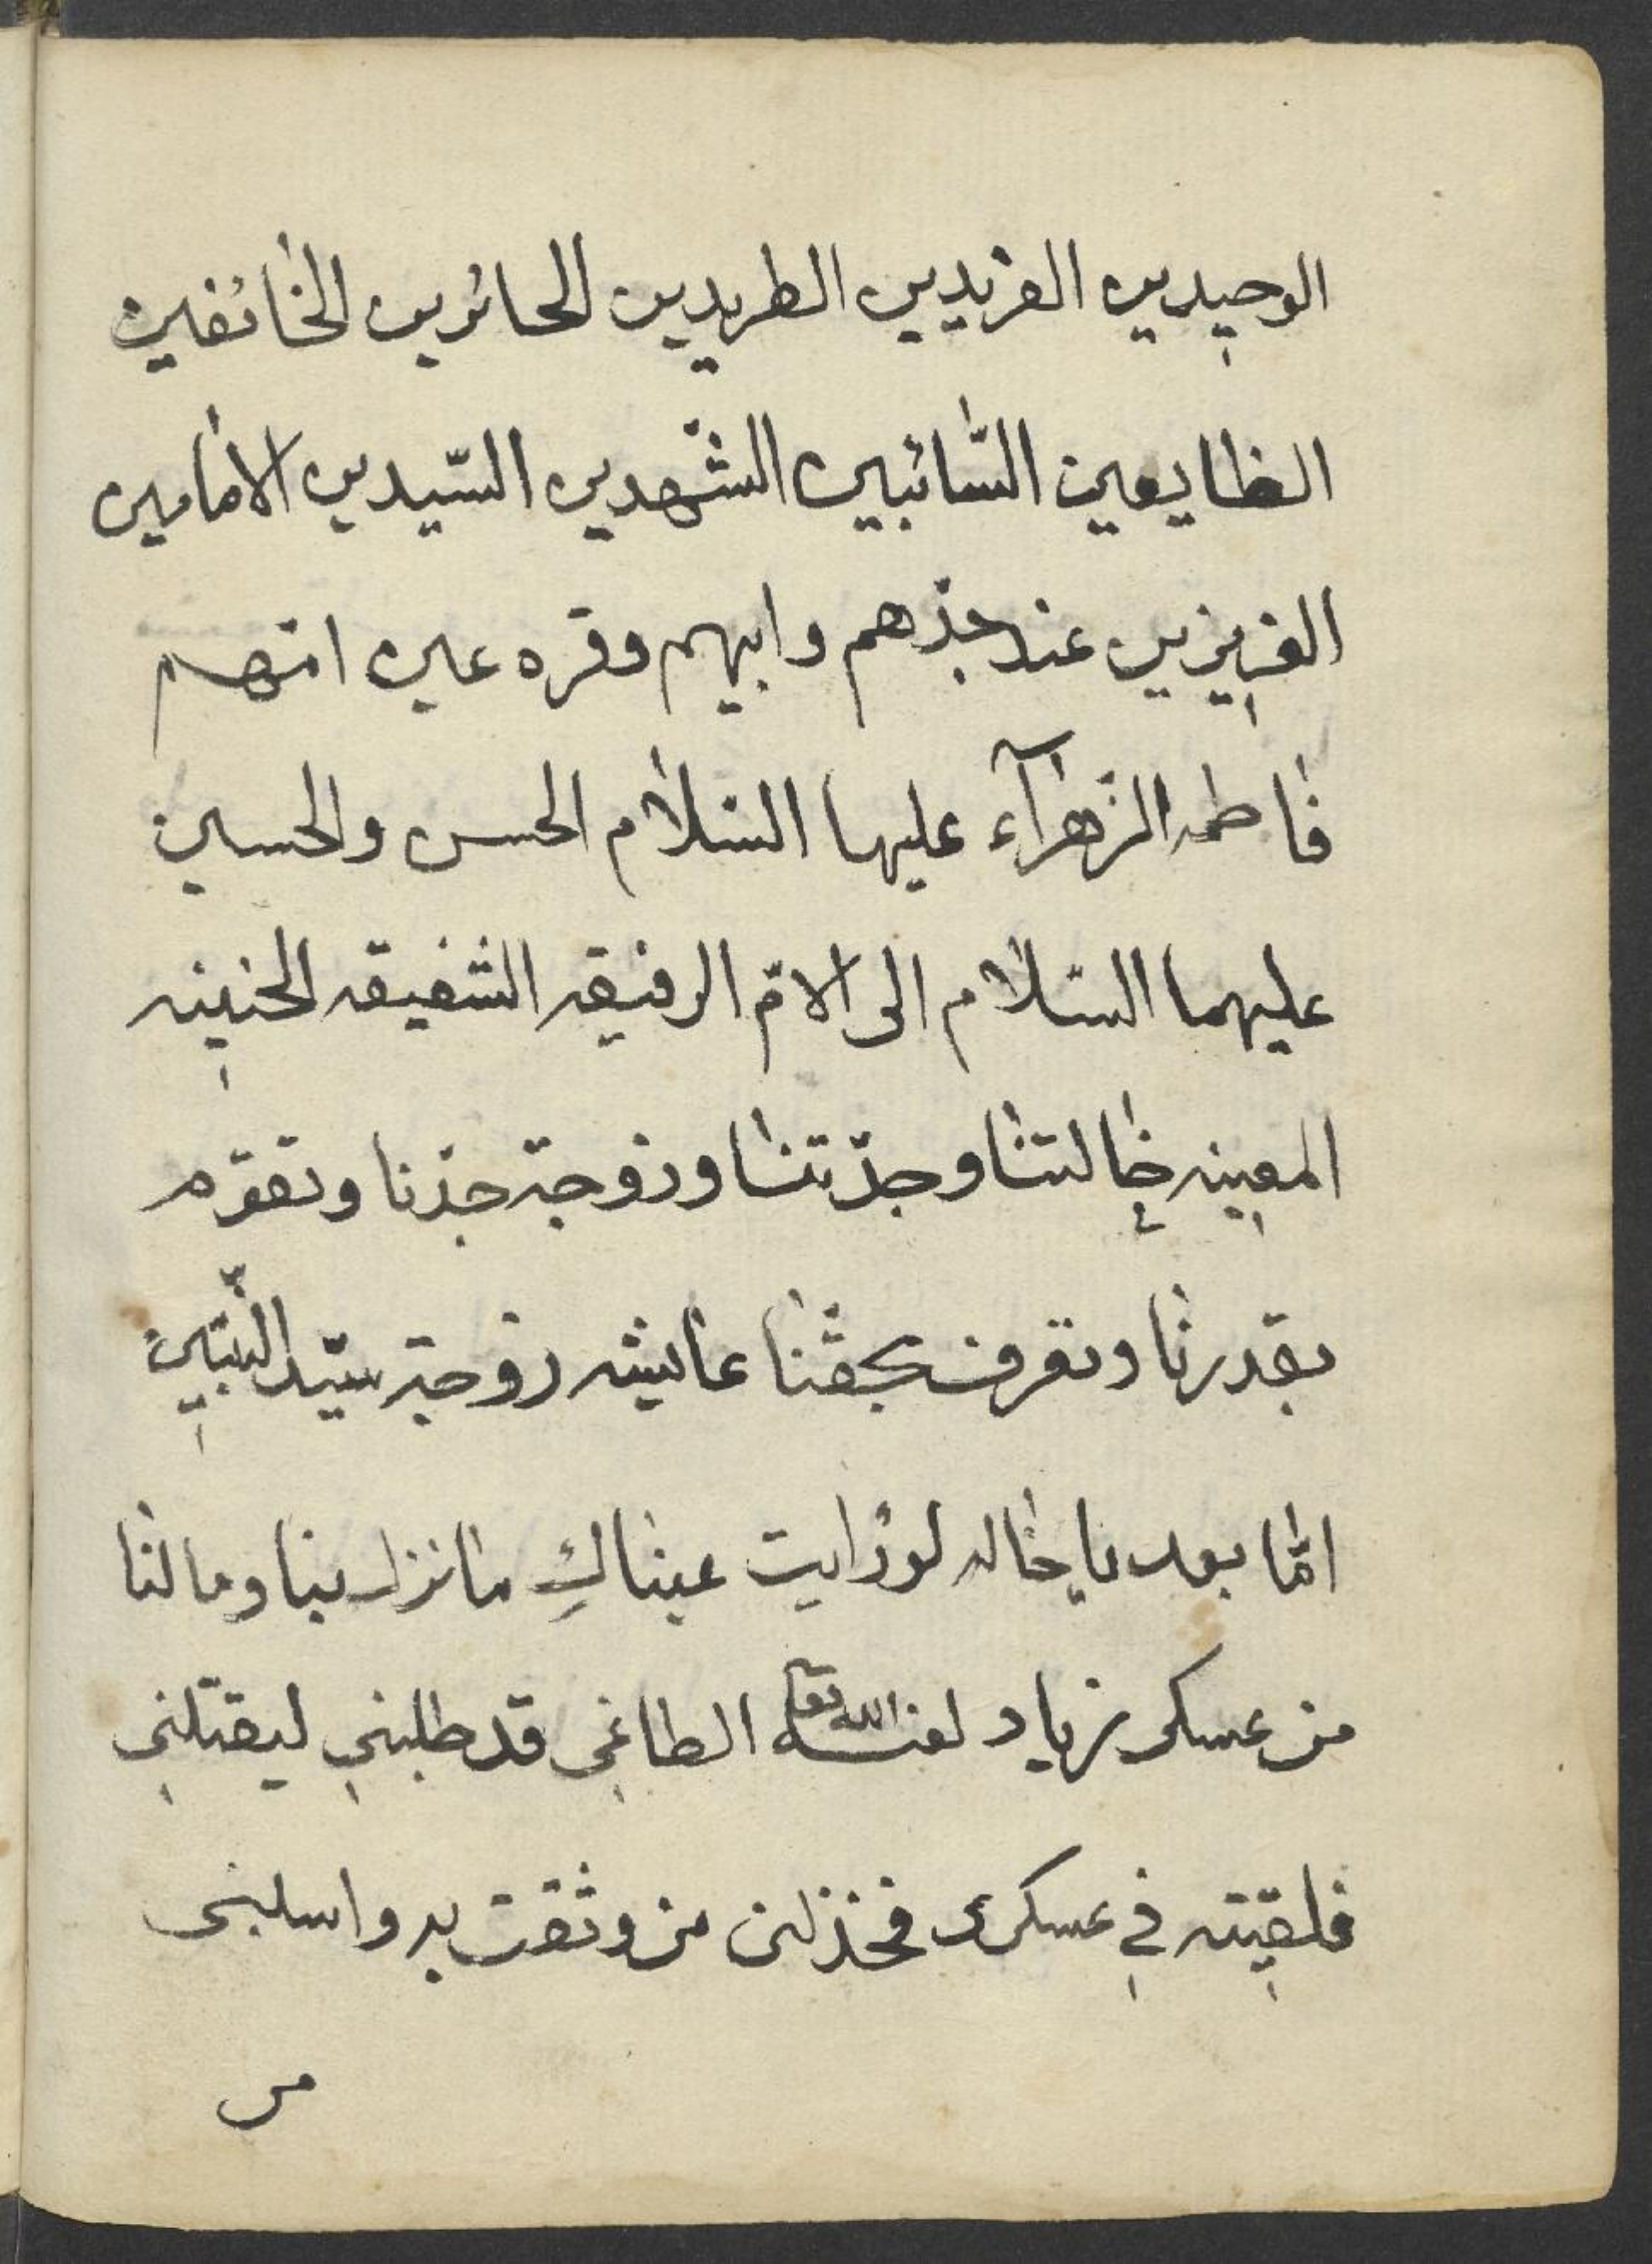 الوحيدين الفريدين الطريدين الحائرين الخائفين
الظايعين السّائبين الشّهدين السّيدين الامامين
العزيزين عند جدّهم وابيهم وقره عين امّهم
فاطمه الزّهرآء عليها السّلام الحسن والحسين
عليهما السّلام الى الامّ الرفيقه الشفيقه الحنينه
المعينه خالتنا وجدّتنا وزوجة جدّنا وتقوّم
بقدرنا وتعرف بحقّنا عايشه زوجة سيّد النّبيّين
امّا بعد يا خاله لو رايت عيناكِ ما نزل بنا وما لنا
من عسكر زياد لعنه الله تعالى الطاغى قد طلبنى ليقتلنى
فلقيته في عسكرى فخذلنى من وثقت به واسلبنى
من